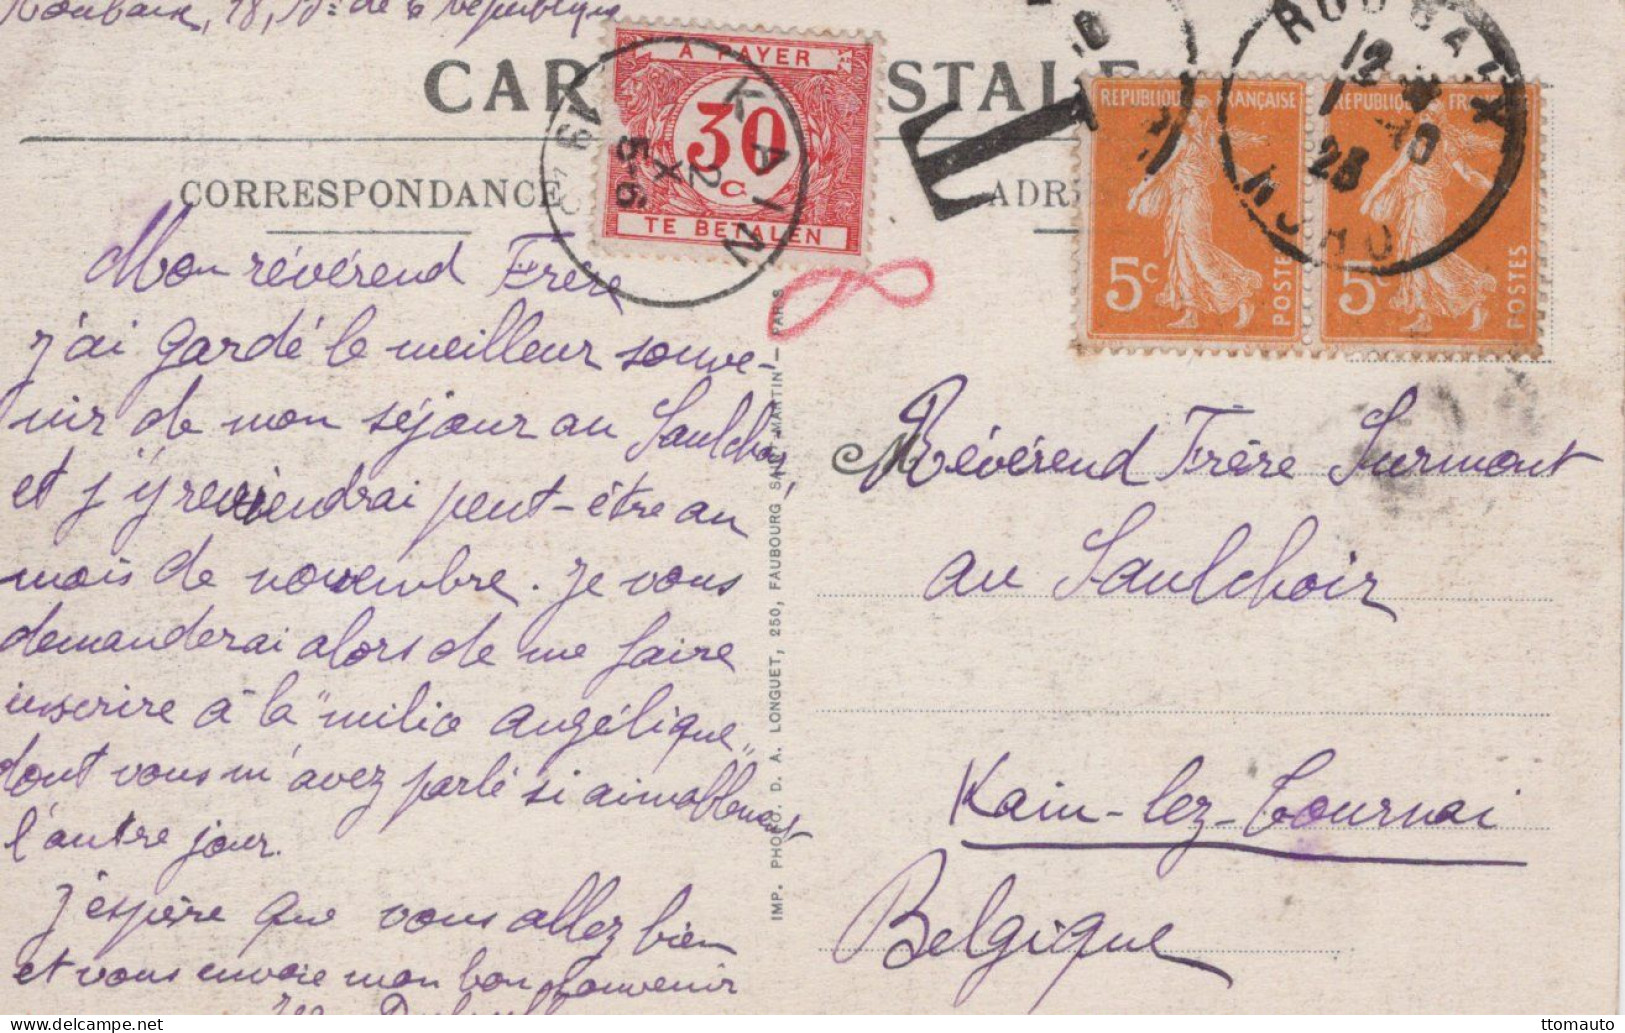 Roubaix, 18, Bd de la République
CARTE POSTALE
A PAYER
30
C
TE BETALEN
KAIN
2
X
5-6
19
T
ROUBAIX
12
1 10
28
NORD
REPUBLIQUE FRANÇAISE
5c
POSTES
REPUBLIQUE FRANÇAISE
5c
POSTES
CORRESPONDANCE
ADRESSE
Mon révérend Frère
j'ai gardé le meilleur souve-
nir de mon séjour au Saulchoir,
et j'y reviendrai peut-être au
mois de novembre. Je vous
demanderai alors de me faire
inscrire à la "milice angélique"
dont vous m'avez parlé si aimablement
l'autre jour.
J'espère que vous allez bien
et vous envoie mon bon souvenir
IMP. PHOTO. D. A. LONGUET, 250, FAUBOURG SAINT-MARTIN — PARIS
Révérend Frère Surmont
au Saulchoir
Kain-lez-Tournai
Belgique
ttomauto